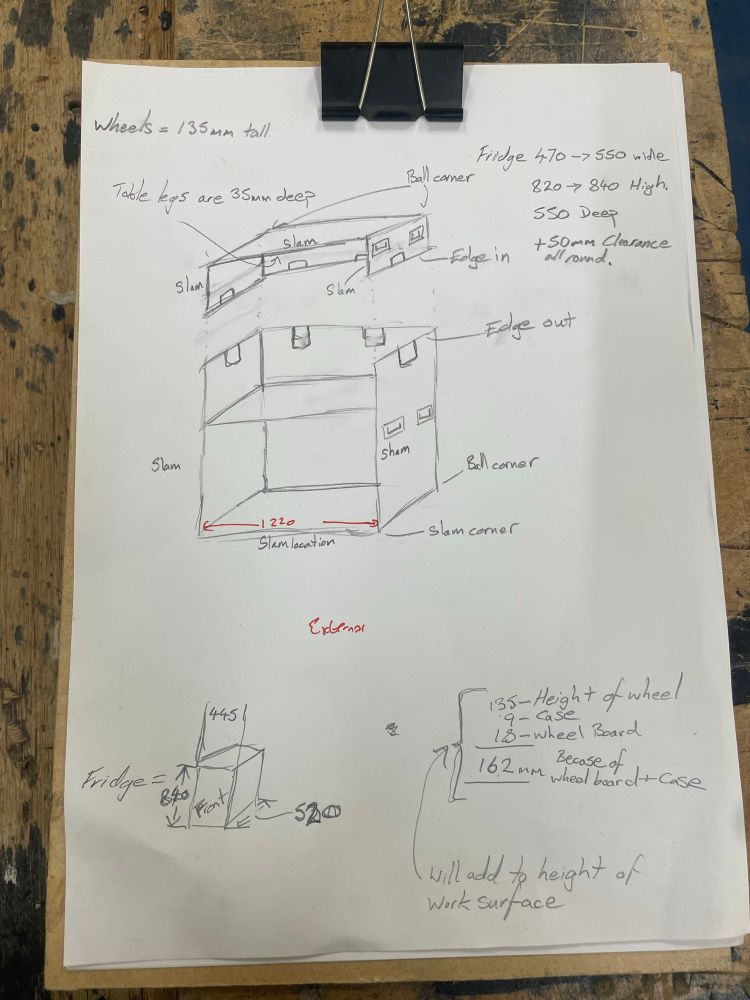 Wheels = 135mm tall.
Fridge 470 → 550 wide
820 → 840 High.
550 Deep
+50mm Clearance
all round.
Ball corner
Table legs are 35mm deep
Slam
Slam
Slam
Edge in
Edge out
Slam
Sham
Ball corner
1220
Slam location
Slam corner
External
445
Fridge =
840
Front
520
135 - Height of wheel
9 - Case
18 - wheel Board
162 mm
Becase of
wheel board + Case
Will add to height of
work surface